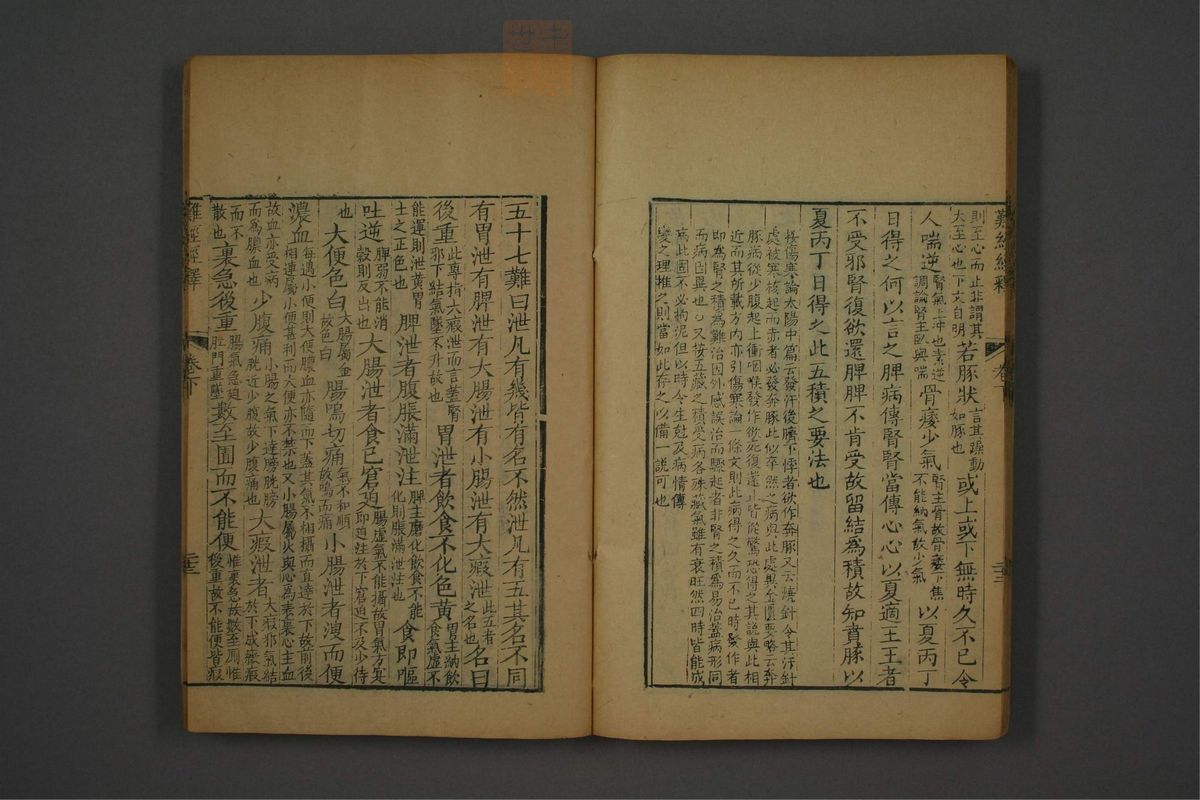 難經經釋 卷下
則至心而止非謂其大至心也下文自明若豚狀言其躁動如豚也或上或下無時久不已令
人喘逆腎氣上沖也素逆調論腎主臥與喘骨痿少氣腎主骨故骨痿下焦不能納氣故少氣以夏丙丁
日得之何以言之脾病傳腎腎當傳心心以夏適王王者
不受邪腎復欲還脾脾不肯受故留結爲積故知賁豚以
夏丙丁日得之此五積之要法也
按傷寒論太陽中篇云發汗後臍下悸者欲作奔豚又云燒針令其汗針
處被寒核起而赤者必發奔豚此似卒然之病與此處異金匱要略云奔
豚病從少腹起上衝咽喉發作欲死復還止皆從驚恐得之其說與此相
近而其所載方內亦引傷寒論一條文則此病得之久而不已時發作者
即爲腎之積爲難治因外感誤治而驟起者非腎之積爲易治蓋病形同
而病因異也又按五藏之積受病各殊藏氣雖有衰旺然四時皆能成
病此固不必拘泥但以時令生尅及病情傳
變之理推之則當如此存之以備一說可也
五十七難曰泄凡有幾皆有名不然泄凡有五其名不同
有胃泄有脾泄有大腸泄有小腸泄有大瘕泄此五者之名也名曰
後重此專指六瘕泄而言蓋腎邪下結氣墜不升故也胃泄者飲食不化色黃胃主納飲食氣虛不
能運則泄黃胃土之正色也脾泄者腹脹滿泄注脾主磨化飲食不能化則脹滿泄注也食即嘔
吐逆脾弱不能消穀則反出也大腸泄者食已窘迫腸虛氣不能攝故胃氣方實即迫注於下窘迫不及少待
也大便色白大腸屬金故色白腸鳴切痛氣不和順故鳴而痛小腸泄者溲而便
濃血每遇小便則大便膿血亦隨而下蓋其氣不相攝而直達於下故前後相連屬小便甚利而大便亦不禁也又小腸屬火與心爲表裏心主血
故血亦受病而爲膿血也少腹痛小腸之氣下達膀胱膀胱近少腹故少腹痛也大瘕泄者大瘕邪氣結於下成癥瘕
而不散也裏急後重腸氣急迫肛門重墜數至圊而不能便惟裏急故數至廁惟後重故不能便皆瘕
難經經釋 卷下